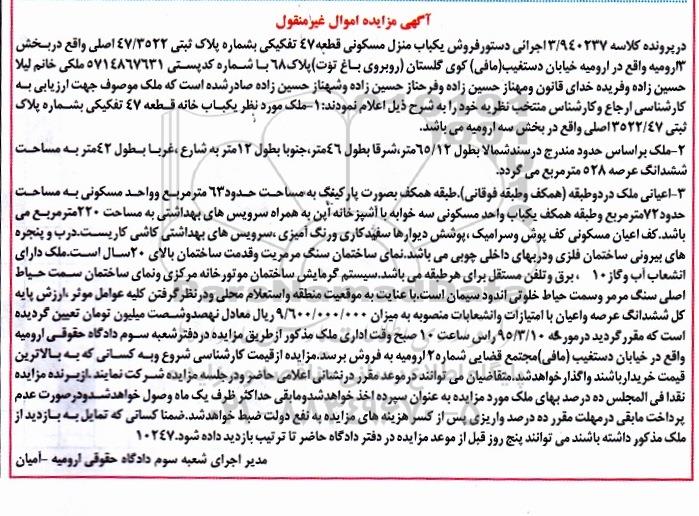 آگهی مزایده اموال غیرمنقول
درپرونده کلاسه ۳/۹۴۰۲۳۷ اجرائی دستورفروش یکباب منزل مسکونی قطعه۴۷ تفکیکی بشماره پلاک ثبتی ۴۷/۳۵۲۲ اصلی واقع دربخش
۳ارومیه واقع در ارومیه خیابان دستغیب(مافی) کوی گلستان (روبروی باغ توت)پلاک۶۸ با شماره کدپستی ۵۷۱۴۸۶۷۶۳۱ ملکی خانم لیلا
حسین زاده وفریده خدای قانون ومهناز حسین زاده وفرحناز حسین زاده وشهناز حسین زاده صادرشده است که ملک موصوف جهت ارزیابی به
کارشناسی ارجاع وکارشناس منتخب نظریه خود را به شرح ذیل اعلام نمودند:۱-ملک مورد نظر یکباب خانه قطعه ۴۷ تفکیکی بشماره پلاک
ثبتی ۳۵۲۲/۴۷اصلی واقع در بخش سه ارومیه می باشد.
۲-ملک براساس حدود مندرج درسندشمالا بطول ۶۵/۱۲متر،شرقا بطول ۴۶متر،جنوبا بطول ۱۲متر به شارع ،غربا بطول ۴۲متر به مساحت
ششدانگ عرصه ۵۲۸ مترمربع می گردد.
۳-اعیانی ملک دردوطبقه (همکف وطبقه فوقانی).طبقه همکف بصورت پارکینگ به مساحت حدود۶۳ مترمربع وواحد مسکونی به مساحت
حدود۷۲مترمربع وطبقه همکف یکباب واحد مسکونی سه خوابه با آشپزخانه آپن به همراه سرویس های بهداشتی به مساحت ۲۲۰مترمربع می
باشد.کف اعیان مسکونی کف پوش وسرامیک ،پوشش دیوارها سفیدکاری ورنگ آمیزی ،سرویس های بهداشتی کاشی کاریست.درب و پنجره
های بیرونی ساختمان فلزی ودربهای داخلی چوبی می باشد.نمای ساختمان سنگ مرمریت وقدمت ساختمان بالای ۲۰سال است.ملک دارای
انشعاب آب وگاز ۱۰ ، برق و تلفن مستقل برای هرطبقه می باشد.سیستم گرمایش ساختمان موتورخانه مرکزی ونمای ساختمان سمت حیاط
اصلی سنگ مرمر وسمت حیاط خلوتی اندود سیمان است.با عنایت به موقعیت منطقه واستعلام محلی ودرنظرگرفتن کلیه عوامل موثر ،ارزش پایه
کل ششدانگ عرصه واعیان با امتیازات وانشعابات منصوبه به میزان ۹/۶۰۰/۰۰۰/۰۰۰ ریال معادل نهصدوشصت میلیون تومان تعیین گردیده
است که مقررگردید درمورخه ۹۵/۳/۱۰ راس ساعت ۱۰ صبح وقت اداری ملک مذکور ازطریق مزایده در دفترشعبه سوم دادگاه حقوقی ارومیه
واقع در خیابان دستغیب (مافی)مجتمع قضایی شماره۲ ارومیه به فروش برسد.مزایده ازقیمت کارشناسی شروع وبه کسانی که به بالاترین
قیمت خریدارباشند واگذارخواهدشد.متقاضیان می توانند درموعد مقرر درنشانی اعلامی حاضر ودرجلسه مزایده شرکت نمایند .ازبرنده مزایده
نقدا فی المجلس ده درصد بهای ملک مورد مزایده به عنوان سپرده اخذ خواهدشدومابقی حداکثر ظرف یک ماه وصول خواهدشدودرصورت عدم
پرداخت مابقی درمهلت مقرر ده درصد واریزی پس از کسر هزینه های مزایده به نفع دولت ضبط خواهدشد.ضمنا کسانی که تمایل به بازدید از
ملک مذکور داشته باشند می توانند پنج روز قبل از موعد مزایده در دفتر دادگاه حاضر تا ترتیب بازدید داده شود.۱۰۲۴۷
مدیر اجرای شعبه سوم دادگاه حقوقی ارومیه -آمیان